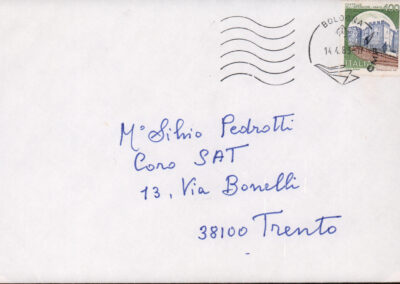 BOLOGNA
14.4.83
400
ITALIA
M° Silvio Pedrotti
Coro SAT
13, Via Bonelli
38100 Trento